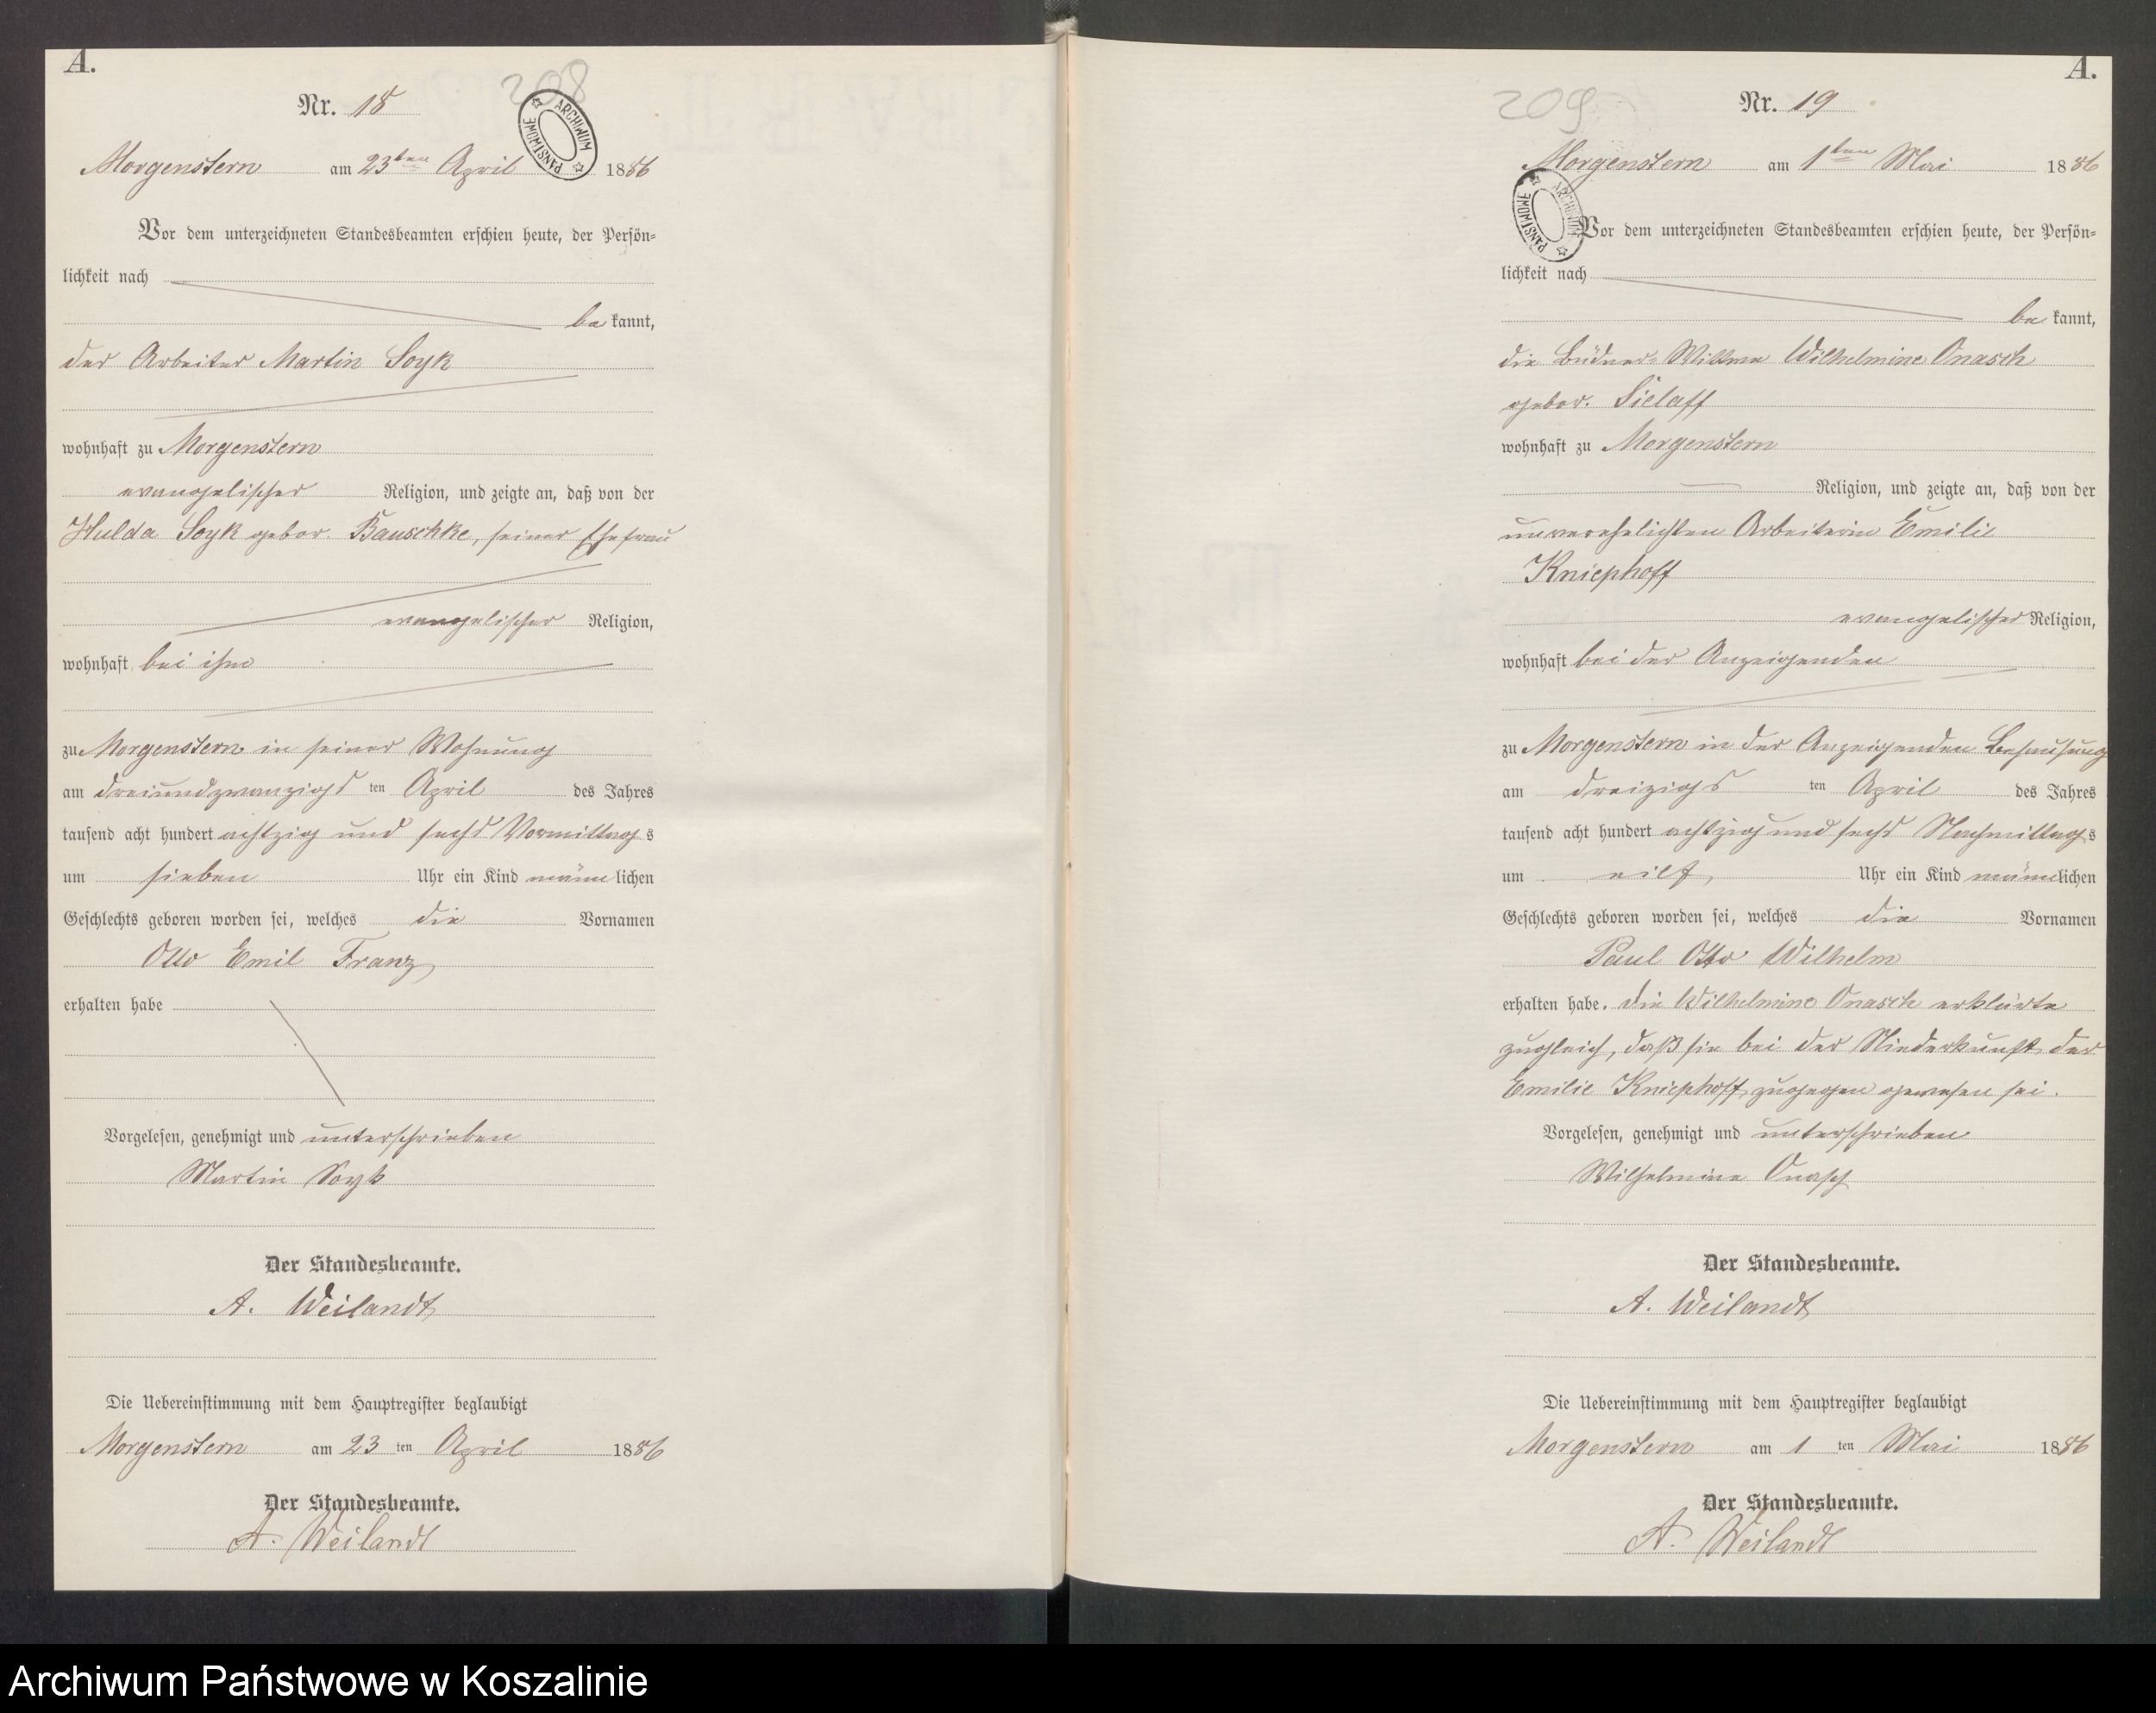 A.
208
Nr. 18
ARCHIWUM PAŃSTWOWE
Morgenstern am 23ten April 1886
Vor dem unterzeichneten Standesbeamten erschien heute, der Persön-
lichkeit nach
be kannt,
der Arbeiter Martin Soyk
wohnhaft zu Morgenstern
evangelischer Religion, und zeigte an, daß von der
Hulda Soyk gebor. Bauschke, seiner Ehefrau
evangelischer Religion,
wohnhaft bei ihm
zu Morgenstern in seiner Wohnung
am dreiundzwanzigst ten April des Jahres
tausend acht hundert achtzig und sechs Vormittag s
um sieben Uhr ein Kind männ lichen
Geschlechts geboren worden sei, welches die Vornamen
Otto Emil Franz
erhalten habe
Vorgelesen, genehmigt und unterschrieben
Martin Soyk
Der Standesbeamte.
A. Weilandt
Die Uebereinstimmung mit dem Hauptregister beglaubigt
Morgenstern am 23 ten April 1886
Der Standesbeamte.
A. Weilandt
A.
209
Nr. 19
Morgenstern am 1ten Mai 1886
ARCHIWUM PAŃSTWOWE
Vor dem unterzeichneten Standesbeamten erschien heute, der Persön-
lichkeit nach
be kannt,
die Büdner-Wittwe Wilhelmine Onasch
gebor. Sielaff
wohnhaft zu Morgenstern
Religion, und zeigte an, daß von der
unverehelichten Arbeiterin Emilie
Kniephoff
evangelischer Religion,
wohnhaft bei der Anzeigenden
zu Morgenstern in der Anzeigenden Behausung
am dreizigs ten April des Jahres
tausend acht hundert achtzig und sechs Nachmittag s
um eilf Uhr ein Kind männlichen
Geschlechts geboren worden sei, welches die Vornamen
Paul Otto Wilhelm
erhalten habe. Die Wilhelmine Onasch erklärte
zugleich, daß sie bei der Niederkunft der
Emilie Kniephoff zugegen gewesen sei.
Vorgelesen, genehmigt und unterschrieben
Wilhelmine Onasch
Der Standesbeamte.
A. Weilandt
Die Uebereinstimmung mit dem Hauptregister beglaubigt
Morgenstern am 1 ten Mai 1886
Der Standesbeamte.
A. Weilandt
Archiwum Państwowe w Koszalinie